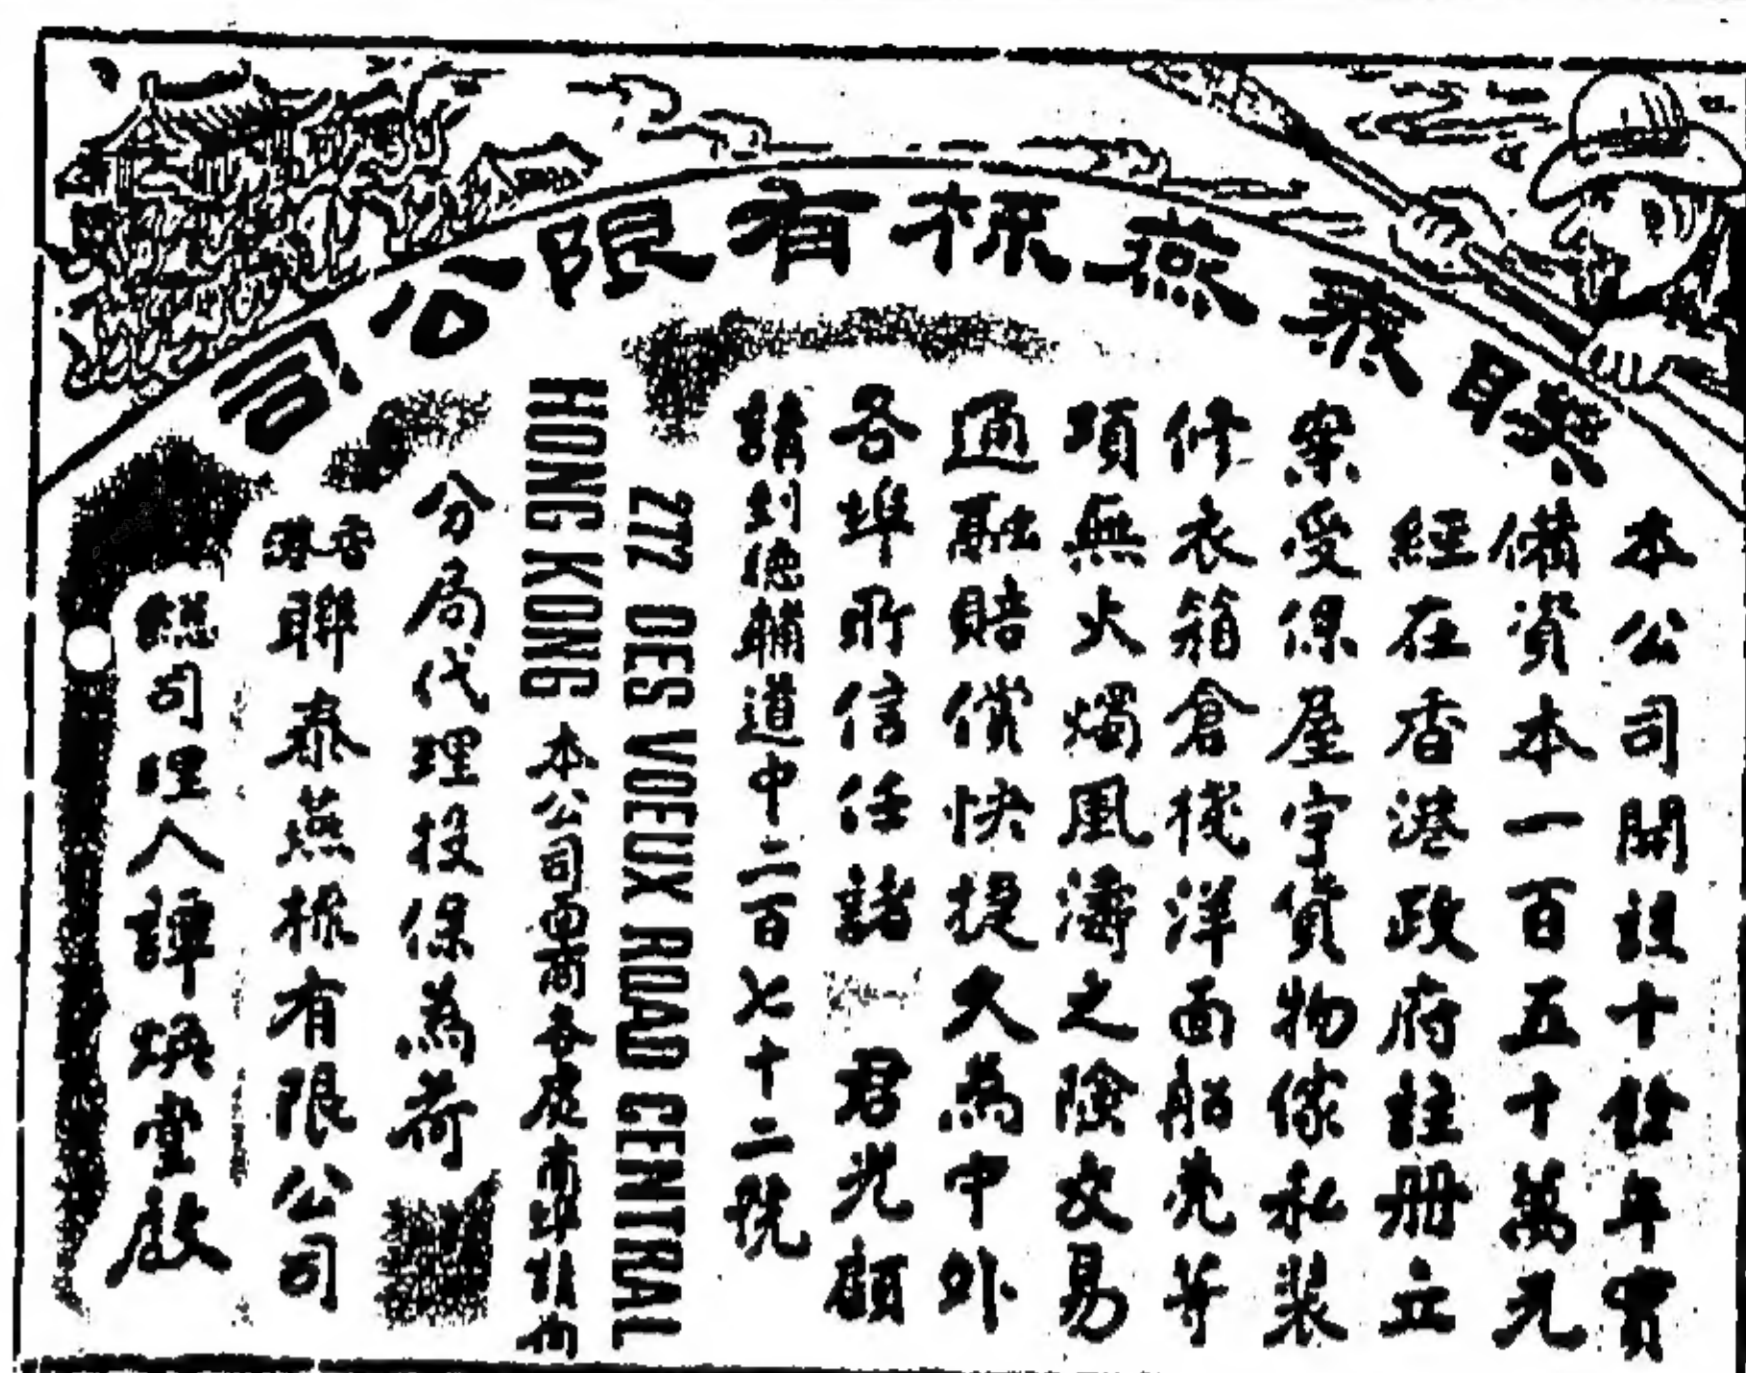 聯泰燕梳有限公司
本公司開設十餘年實
備資本一百五十萬元
經在香港政府註册立
案受保屋宇貨物傢私裝
修衣箱倉棧洋面船壳等
項無火燭風濤之險交易
通融賠償快捷久為中外
各埠所信任諸 君光顧
請到德輔道中二百七十二號
272 DES VOEUX ROAD CENTRAL
HONG KONG 本公司各處南埠請向
分局代理投保為荷
香港聯泰燕梳有限公司
總司理人譚煥堂啟